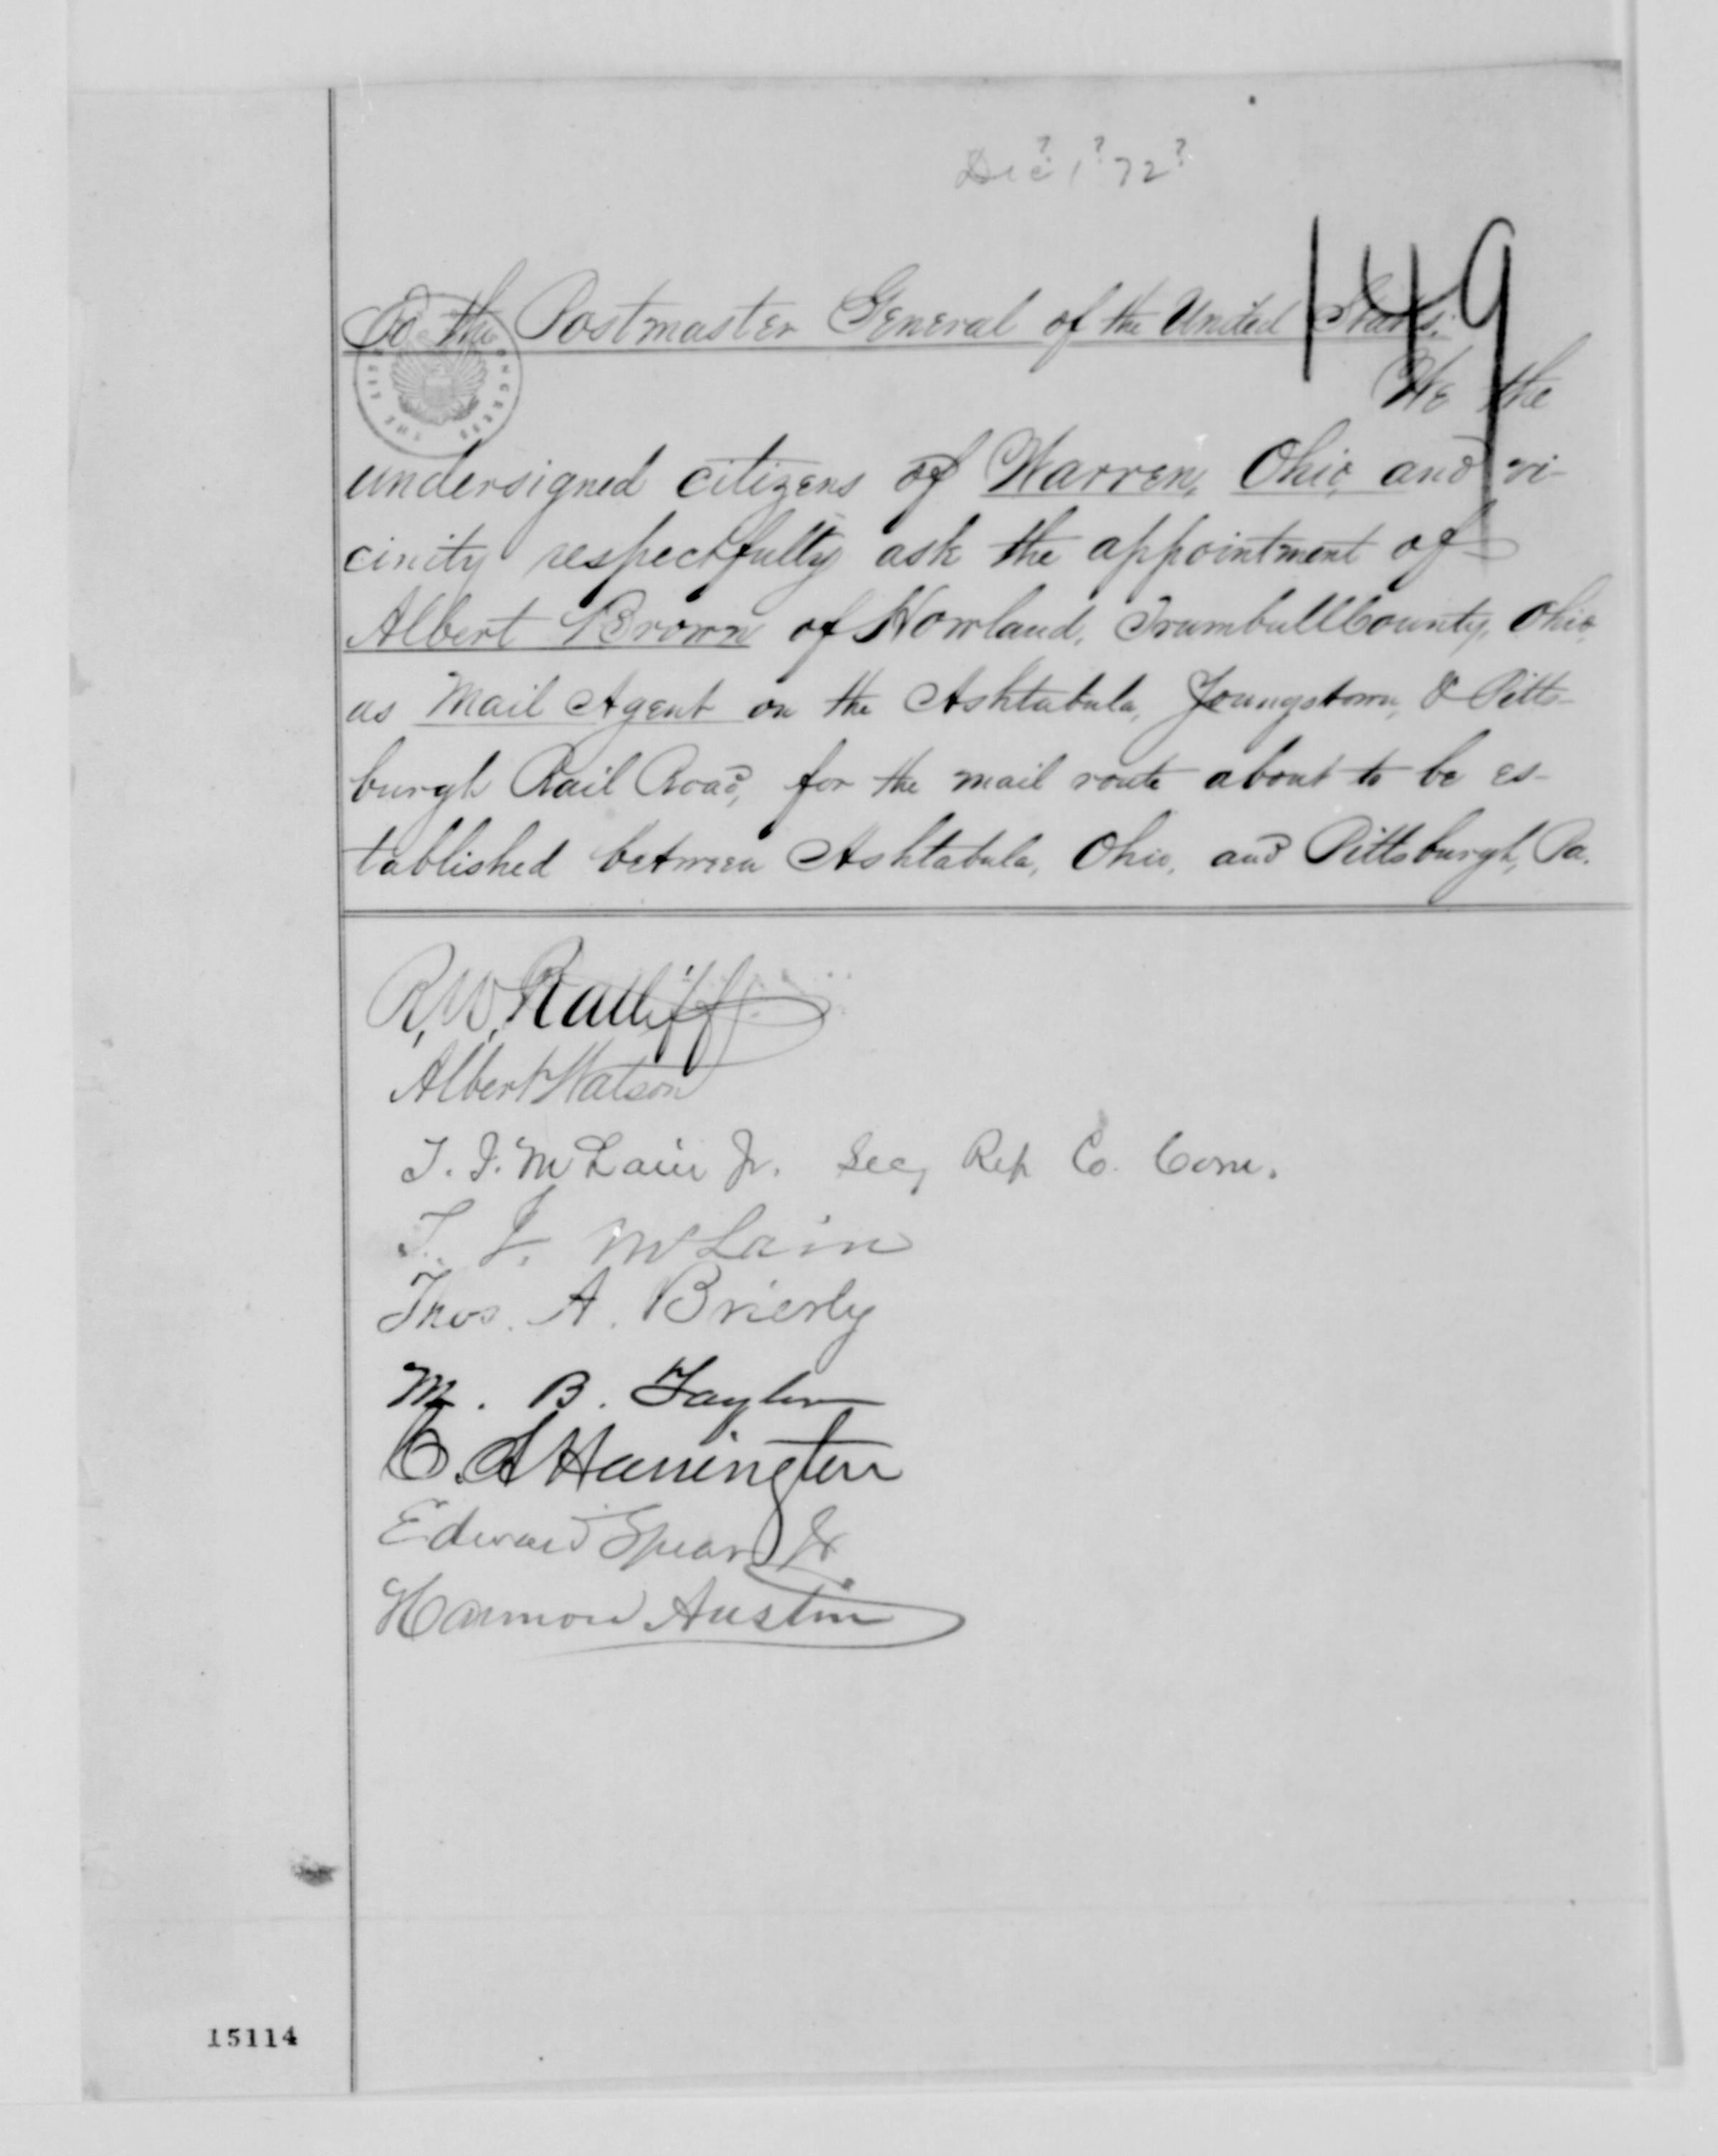 Dec? 1? 72?
149
To the Postmaster General of the United States.
We the
undersigned citizens of Warren, Ohio, and vi-
cinity respectfully ask the appointment of
Albert Brown of Howland, Trumbull County, Ohio,
as Mail Agent on the Ashtabula, Youngstown, & Pitts-
burgh Rail Road, for the mail route about to be es-
tablished between Ashtabula, Ohio, and Pittsburgh, Pa.
R. W. Ratliff
Albert Watson
T. J. McLain Jr. Secy Rep Co. Com.
T. J. McLain
Thos. A. Brierly
M. B. Tayler
C. A Harrington
Edward Spear Jr
Harmon Austin
15114